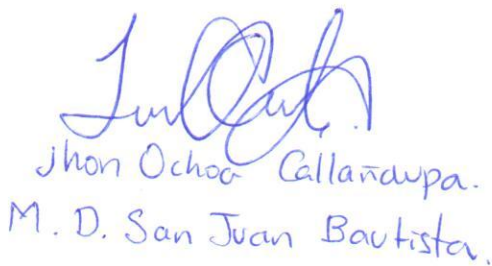 Jhon Ochoa Callañaupa.
M. D. San Juan Bautista.